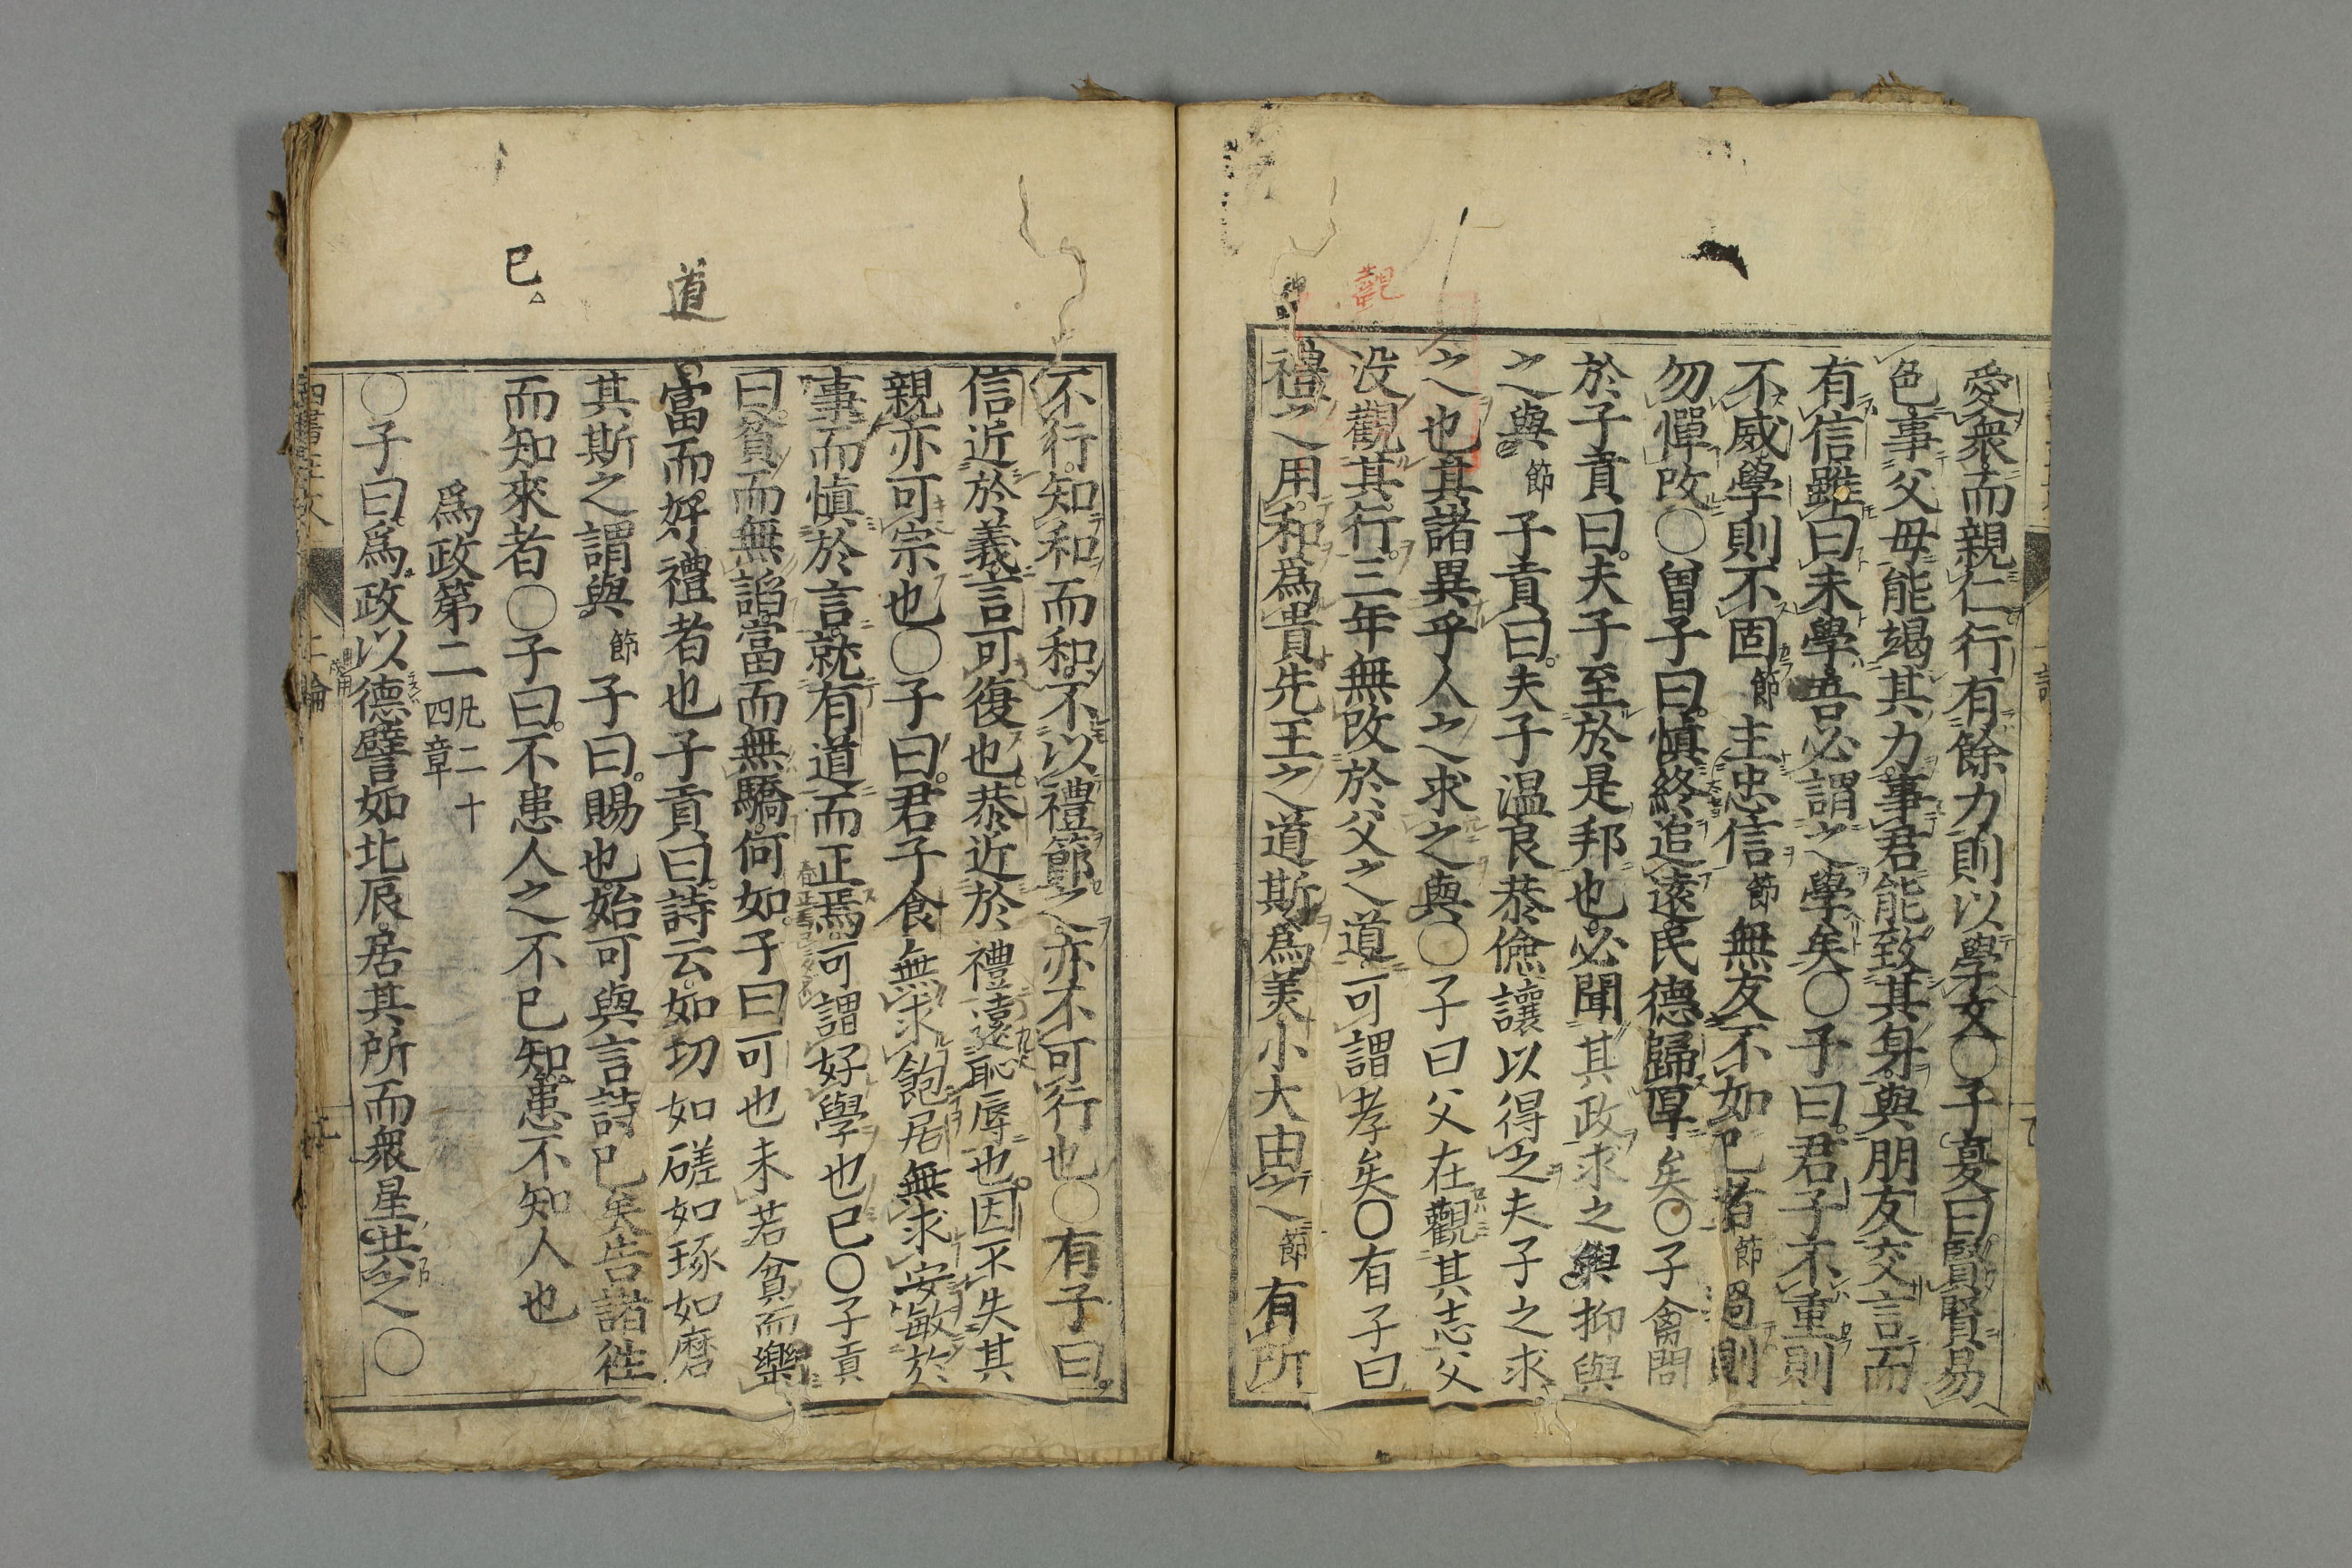 愛衆而親仁行有餘力則以學文○子夏曰賢賢易
色事父母能竭其力事君能致其身與朋友交言而
有信雖曰未學吾必謂之學矣○子曰君子不重則
不威學則不固 節 主忠信 節 無友不如己者 節 過則
勿憚改○曾子曰愼終追遠民德歸厚矣○子禽問
於子貢曰夫子至於是邦也必聞其政求之與抑與
之與 節 子貢曰夫子温良恭儉讓以得之夫子之求
之也其諸異乎人之求之與○子曰父在觀其志父
没觀其行三年無改於父之道可謂孝矣○有子曰
禮之用和爲貴先王之道斯爲美小大由之 節 有所
觀
不行知和而和不以禮節之亦不可行也○有子曰
信近於義言可復也恭近於禮遠恥辱也因不失其
親亦可宗也○子曰君子食無求飽居無求安敏於
事而愼於言就有道而正焉可謂好學也已○子貢
曰貧而無諂富而無驕何如子曰可也未若貧而樂
富而好禮者也子貢曰詩云如切如磋如琢如磨
其斯之謂與 節 子曰賜也始可與言詩已矣告諸往
而知來者○子曰不患人之不已知患不知人也
爲政第二 凡二十四章
○子曰爲政以德譬如北辰居其所而衆星共之○
道
已